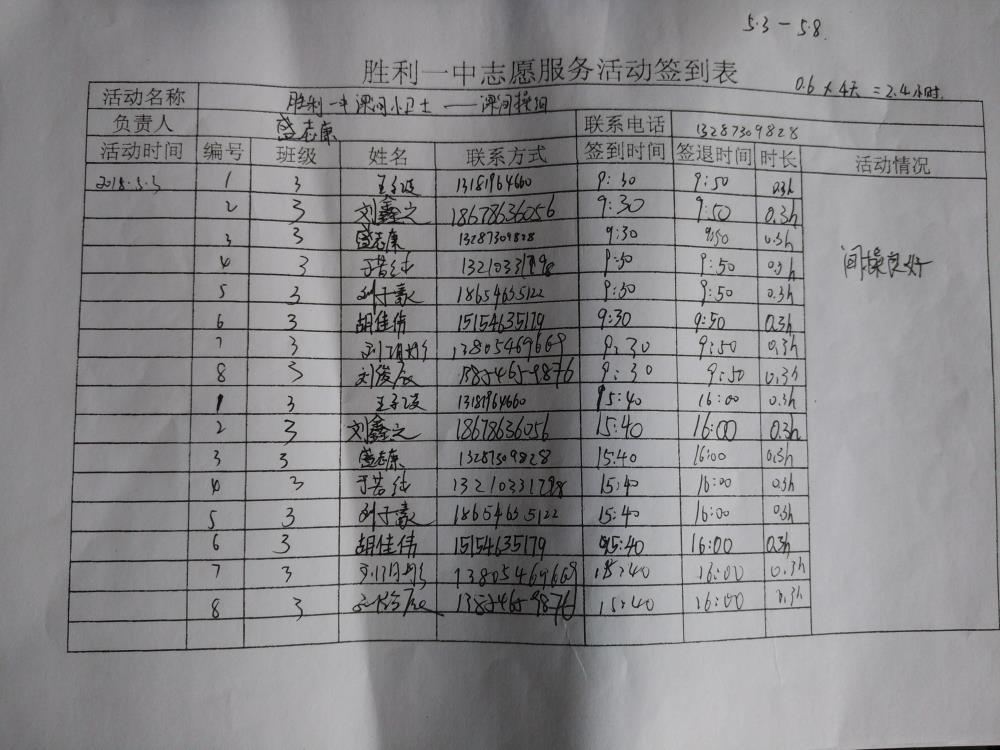 5.3－5.8.
胜利一中志愿服务活动签到表
0.6×4天＝2.4小时.
活动名称 胜利一中课间小卫士——课间操组
负责人 盛志康 联系电话 13287309828
活动时间 编号 班级 姓名 联系方式 签到时间 签退时间 时长 活动情况
2018.5.3 1 3 13181964660 9:30 9:50 0.3h
2 3 刘鑫之 18678636056 9:30 9:50 0.3h
3 3 盛志康 13287309828 9:30 9:50 0.3h
4 3 于若纯 13210331798 9:30 9:50 0.3h
间操良好
5 3 刘子豪 18654635122 9:30 9:50 0.3h
6 3 胡佳伟 15154635179 9:30 9:50 0.3h
7 3 13805469669 9:30 9:50 0.3h
8 3 刘俊辰 9:30 9:50 0.3h
1 3 13181964660 15:40 16:00 0.3h
2 3 刘鑫之 18678636056 15:40 16:00 0.3h
3 3 盛志康 13287309828 15:40 16:00 0.3h
4 3 于若纯 13210331798 15:40 16:00 0.3h
5 3 刘子豪 18654635122 15:40 16:00 0.3h
6 3 胡佳伟 15154635179 15:40 16:00 0.3h
7 3 13805469669 15:40 16:00 0.3h
8 3 15:40 16:00 0.3h